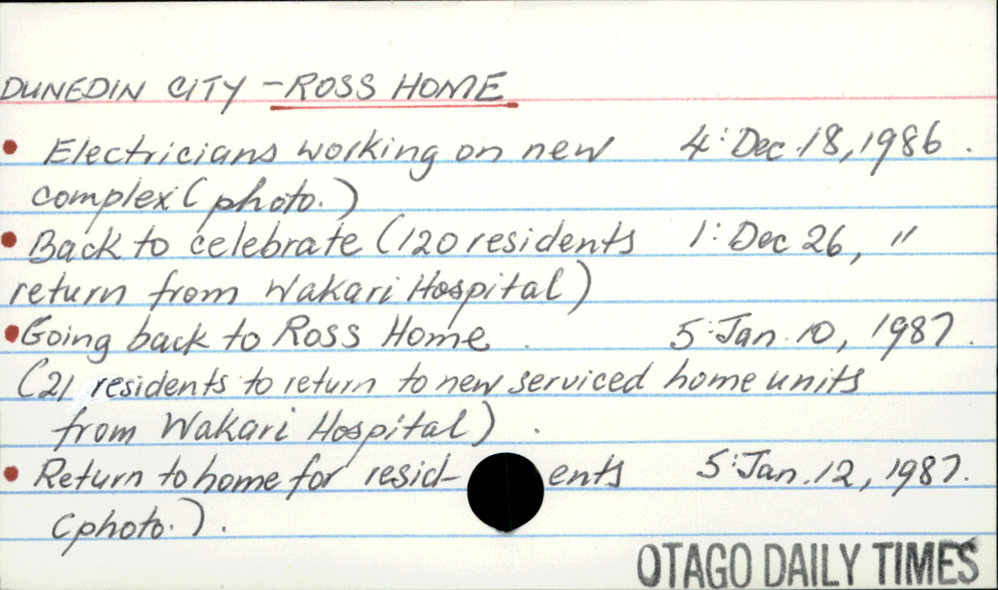 DUNEDIN CITY - ROSS HOME
• Electricians working on new 4: Dec. 18, 1986.
complex (photo.)
• Back to celebrate (120 residents 1: Dec 26, "
return from Wakari Hospital)
• Going back to Ross Home. 5: Jan. 10, 1987.
(21 residents to return to new serviced home units
from Wakari Hospital).
• Return to home for resid- ents 5: Jan. 12, 1987.
(photo.).
OTAGO DAILY TIMES